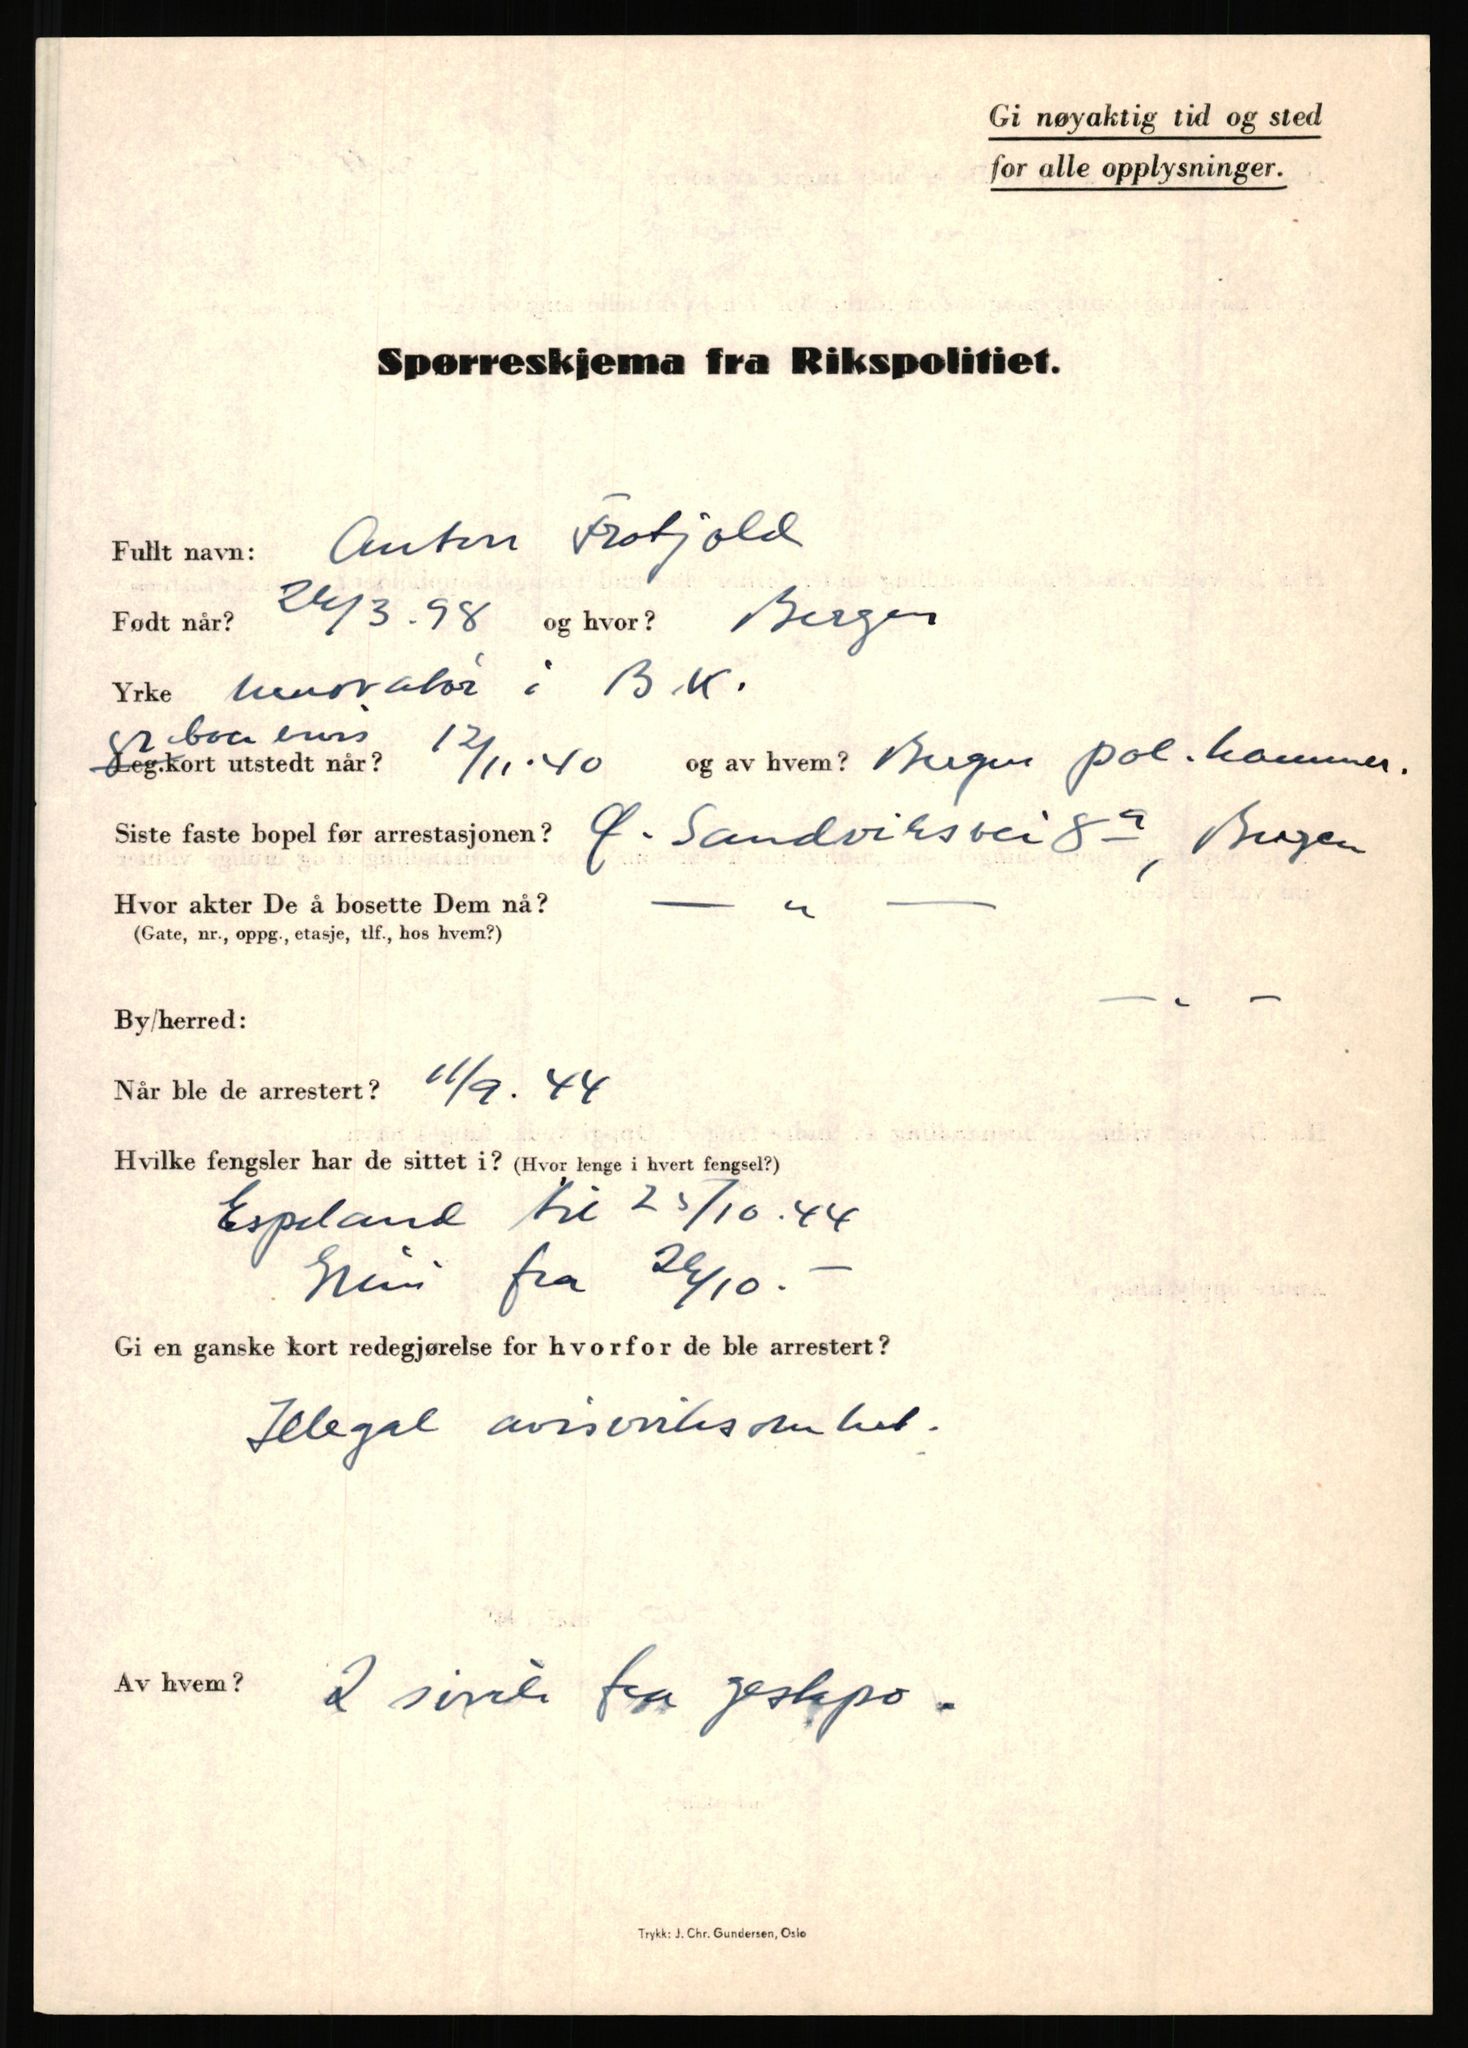 Gi nøyaktig tid og sted
for alle opplysninger.
Spørreskjema fra Rikspolitiet.
Fullt navn: Anton Frotjold
Født når? 24/3.98 og hvor? Bergen
Yrke i B.K.
gr. boer bevis
Leg.kort utstedt når? 12/11.40 og av hvem? Bergen pol.kammer.
Siste faste bopel før arrestasjonen? Ø. Sandviksvei 8a, Bergen
Hvor akter De å bosette Dem nå? — " —
(Gate, nr., oppg., etasje, tlf., hos hvem?)
— " —
By/herred:
Når ble de arrestert? 11/9. 44
Hvilke fengsler har de sittet i? (Hvor lenge i hvert fengsel?)
Espeland til 25/10.44
Grini fra 26/10. —
Gi en ganske kort redegjørelse for hvorfor de ble arrestert?
Illegal avisvirksomhet.
Av hvem? 2 sivile fra gestapo.
Trykk: J. Chr. Gundersen, Oslo